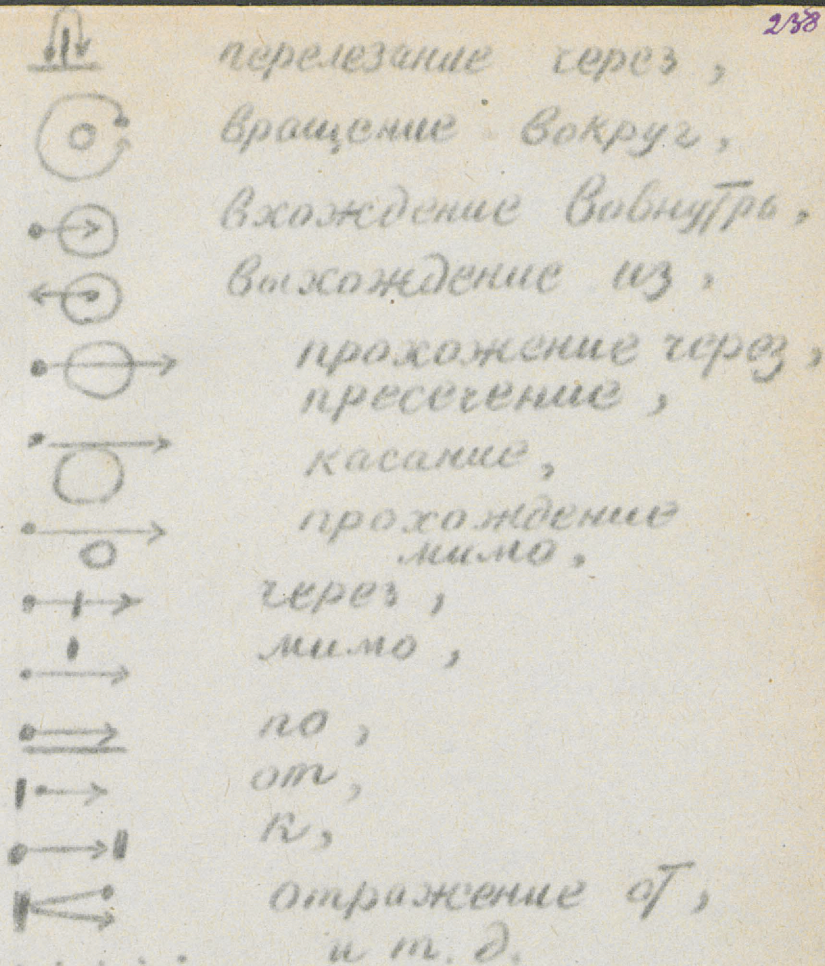 238
перелезание через,
вращение вокруг,
вхождение вовнутрь,
выхождение из.
прохожение через,
пресечение,
касание,
прохождение
мимо,
через,
мимо,
по,
от,
к,
отражение от,
и т. д.